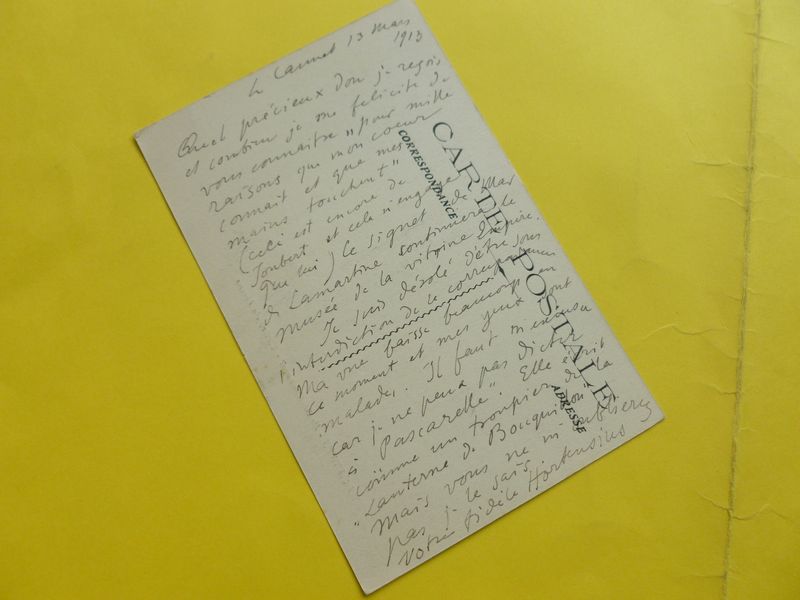 Le Cannet 13 Mars
1913
Quel précieux don je reçois
et combien je me felicite de
vous connaitre "pour mille
raisons que mon coeur
connait et que mes
mains touchent"
(ceci est encore de
Joubert et cela n'engage
que lui) le signet de Mar
de Lamartine continuera le
musée de la vitrine Empire.
Je suis désolé d'être sous
l'interdiction de la correspondance
Ma vue baisse beaucoup en
ce moment et mes yeux sont
malades. Il faut m'excuser
car je ne peux pas dicter
à "Pascarelle". Elle écrit
comme un troupier de la
"Lanterne de Bouquillon"
mais vous ne m'oublierez
pas je le sais.
Votre fidèle Hortensius
CARTE POSTALE
CORRESPONDANCE
ADRESSE